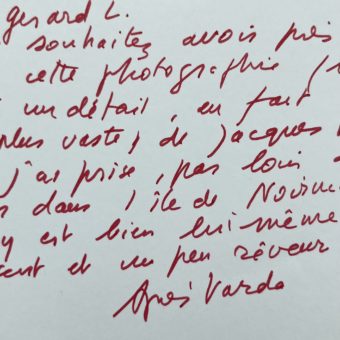 Gerard L.
souhaitez avoir près
cette photographie
un détail, en fait
plus vaste, de Jacques
j'ai prise, pas loin
dans l'île de Noirm
y est bien lui-même
et un peu rêveur
Agnès Varda